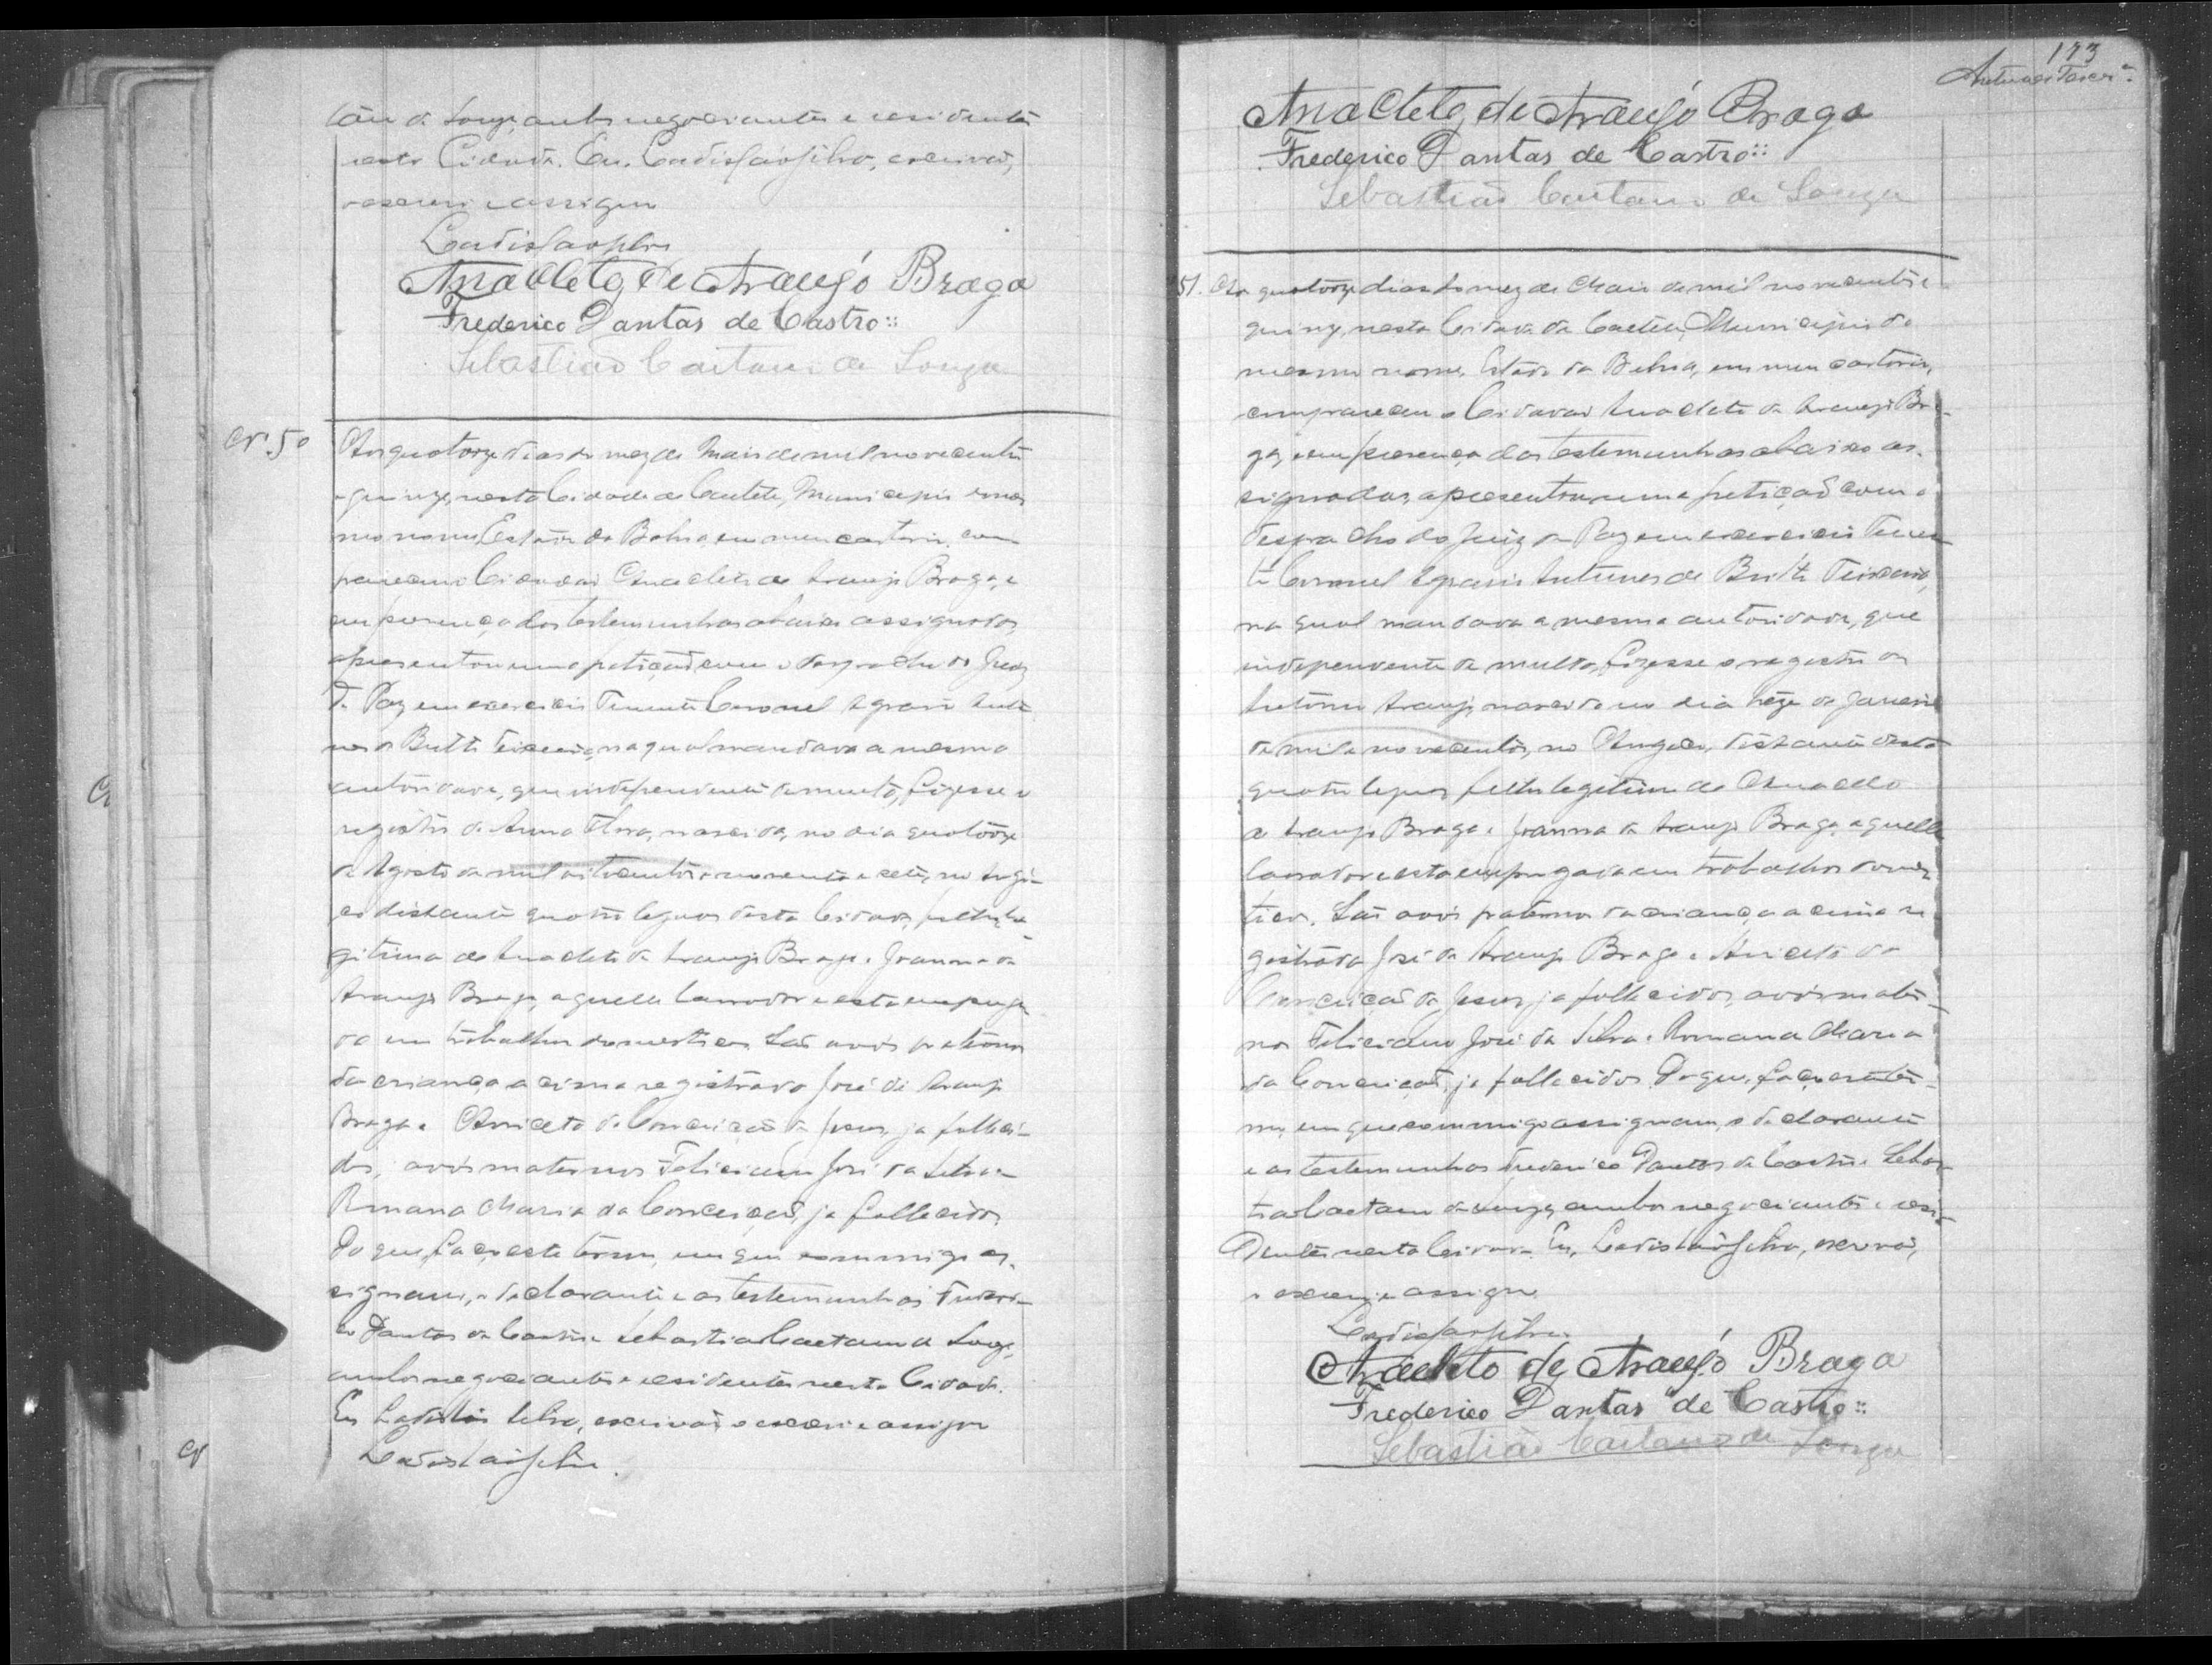 tão de Souza, ambos negociantes e residentes
nesta Cidade. Eu, Ladislao Silva, escrivão,
o escrevi e assigno
Ladislao Silva
Anacleto de Araujo Braga
Frederico Dantas de Castro::
Sebastião Caetano de Souza
Nº 50
Aos quatorze dias do mez de Maio de mil novecentos
e quinze, nesta Cidade de Caeteté, Municipio do mes
mo nome, Estado da Bahia, em meu cartorio, com
pareceu o Cidadão Anacleto de Araujo Braga, e
em presença das testemunhas abaixo assignadas,
apresentou uma petição com o despacho do Juiz
de Paz em exercicio Tenente Coronel Antu
nes de Britto Teixeira, na qual mandava a mesma
autoridade, que independente de multa, fizesse o
registro de Anna, nascida, no dia quatorze
de Agosto de mil oitocentos e noventa e sete, no
distante quatro leguas desta Cidade, filha le
gitima de Anacleto de Araujo Braga e Joanna de
Araujo Braga, aquelle lavrador e esta emprega
da em trabalhos domesticos. São avós paternos
da criança acima registrada José de Araujo
Braga e Aniceta da Conceição de Jesus, ja falleci-
dos, avós maternos Feliciano José da Silva e
Romana Maria da Conceição, ja fallecidos.
Do que, faço este termo, em que commigo as-
signam, o declarante e as testemunhas Frederi-
co Dantas de Castro e Sebastião Caetano de Souza,
ambos negociantes e residentes nesta Cidade.
Eu Ladislao Silva, escrivão o escrevi e assigno
Ladislao Silva.
173
Antunes Teixrª.
Anacleto de Araujo Braga
Frederico Dantas de Castro::
Sebastião Caetano de Souza
51. Aos quatorze dias do mez de Maio de mil novecentos e
quinze, nesta Cidade de Caeteté, Municipio do
mesmo nome, Estado da Bahia, em meu cartorio,
compareceu o Cidadão Anacleto de Araujo Bra-
ga, e em presença das testemunhas abaixo as-
signadas, apresentou uma petição com o
despacho do Juiz de Paz em exercicio Tenen
te Coronel Antunes de Britto Teixeira,
na qual mandava a mesma autoridade, que
independente de multa, fizesse o registro de
Antonio Araujo, nascido no dia treze de Janeiro
de mil e novecentos, no distante desta
quatro leguas filho legitimo de Anacleto
de Araujo Braga e Joanna de Araujo Braga, aquelle
lavrador e esta empregada em trabalhos domes
ticos. São avós paternos da criança acima re-
gistrada José de Araujo Braga e Aniceta da
Conceição de Jesus, ja fallecidos, avós mater-
nos Feliciano José da Silva e Romana Maria
da Conceição, ja fallecidos. Do que, faço este ter-
mo, em que commigo assignam, o declarante
e as testemunhas Frederico Dantas de Castro e Sebas-
tião Caetano de Souza, ambos negociantes e resi-
dentes nesta Cidade. Eu, Ladislao Silva, escrivão,
o escrevi e assigno
Ladislao Silva
Anacleto de Araujo Braga
Frederico Dantas de Castro::
Sebastião Caetano de Souza